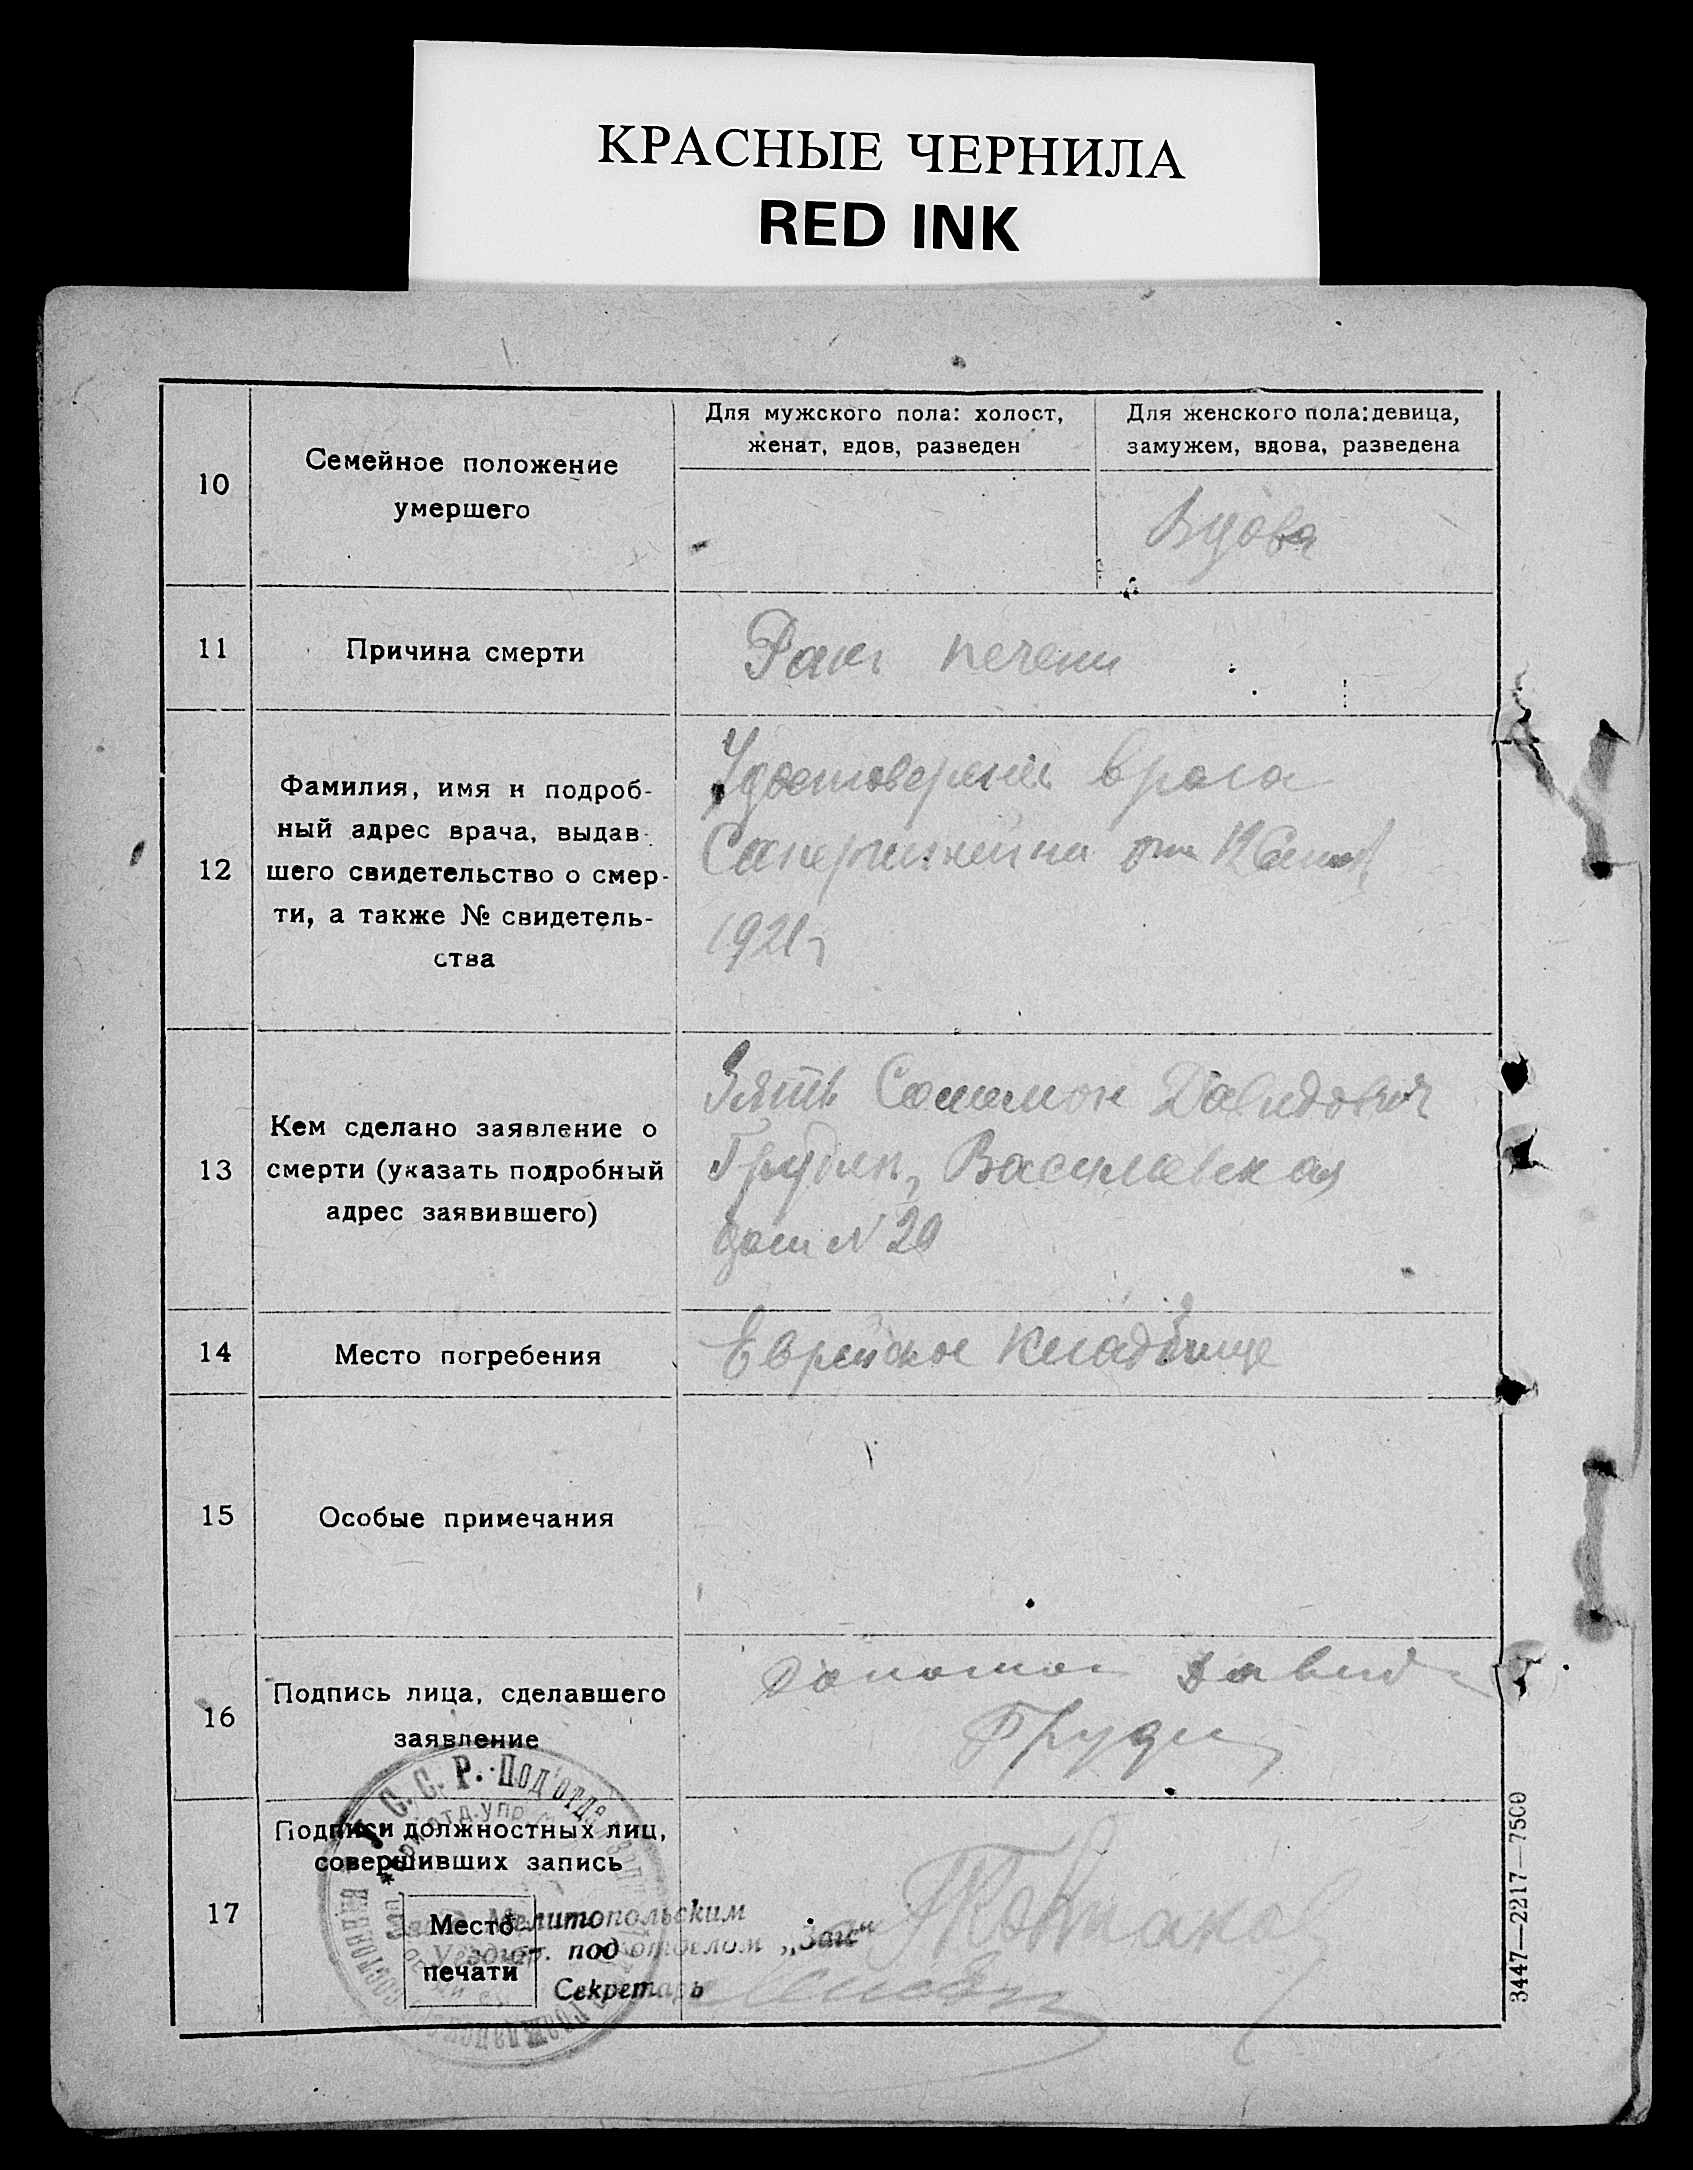 КРАСНЫЕ ЧЕРНИЛА
RED INK
10
Семейное положение
умершего
Для мужского пола: холост,
женат, вдов, разведен
Для женского пола: девица,
замужем, вдова, разведена
Вдова
11
Причина смерти
Рак печени
12
Фамилия, имя и подроб-
ный адрес врача, выдав-
шего свидетельство о смер-
ти, а также № свидетель-
ства
Удостоверение врача
от 12
1921 г
13
Кем сделано заявление о
смерти (указать подробный
адрес заявившего)
Зять Соломон Давидович
Василевская
дом N 20
14
Место погребения
Еврейское кладбище
15
Особые примечания
16
Подпись лица, сделавшего
заявление
Соломон Давид
17
Подписи должностных лиц,
совершивших запись
Место
печати
С. С. Р. Под'отдел
Мелитопольским
под отделом „Загс“
Секретарь
3447—2217—7500